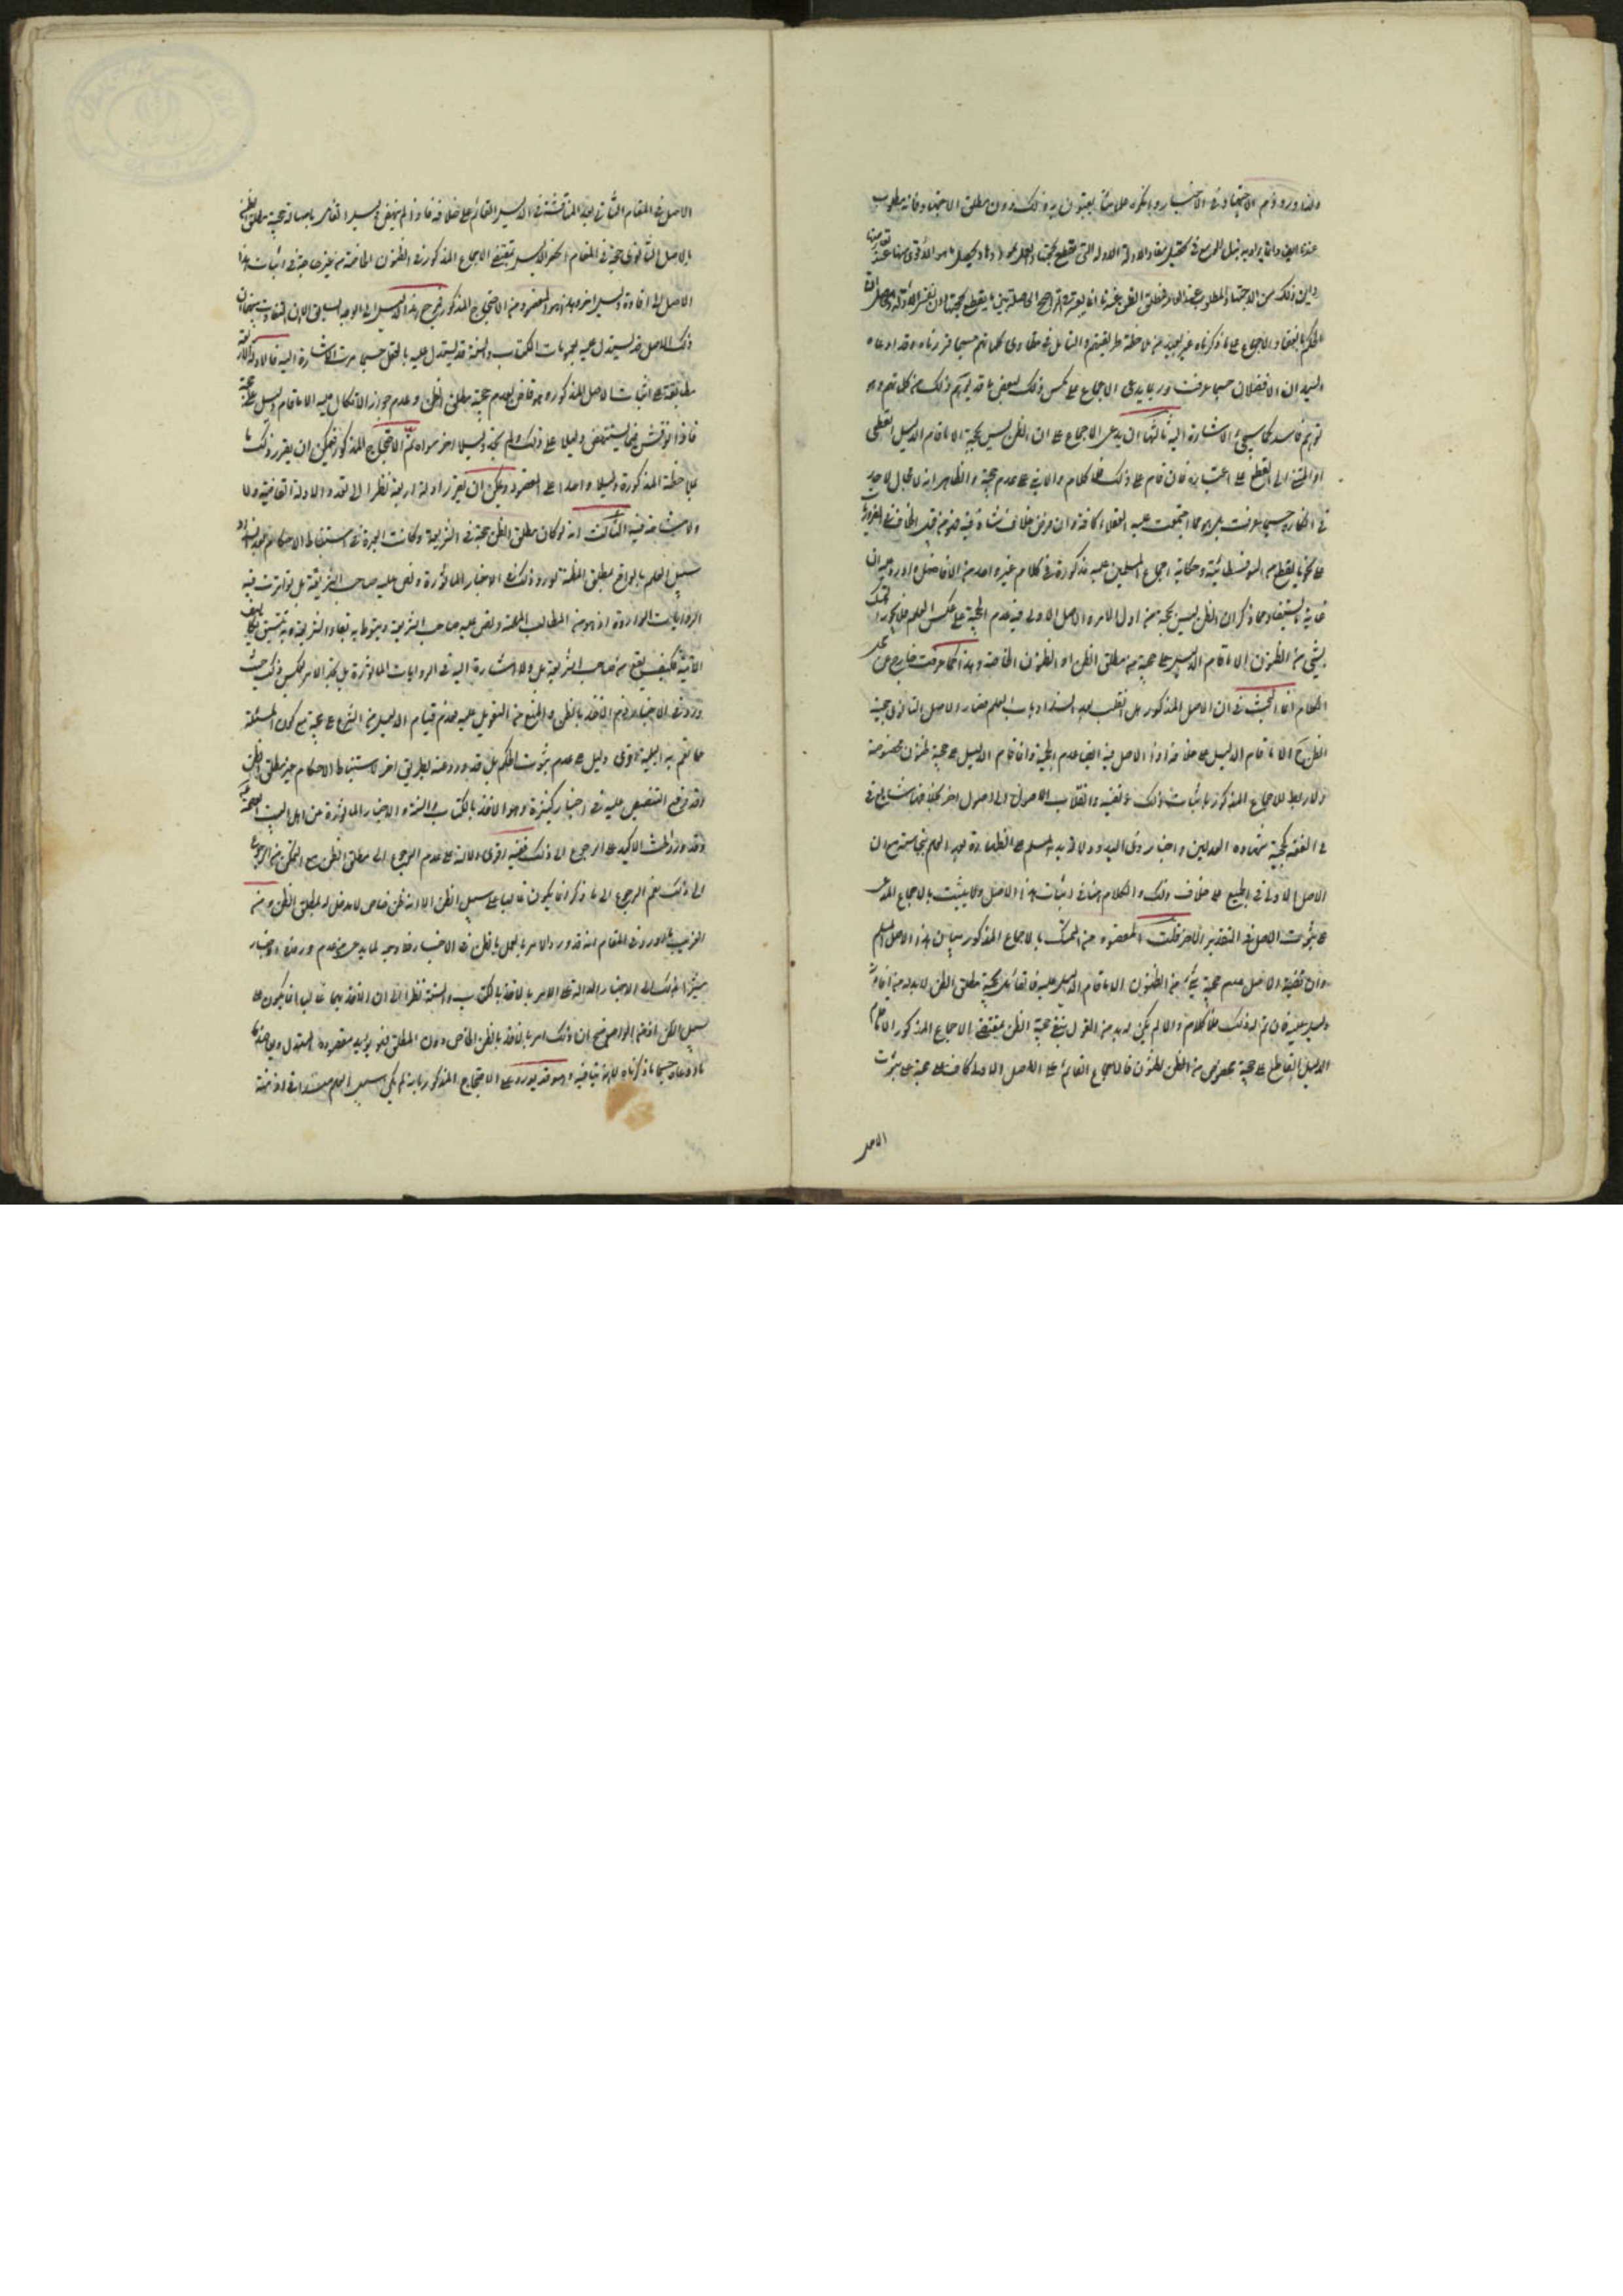 ولذا ورد ذم الاجتهاد في الاخبار وانكره علمائنا يعنون به ذلك دون مطلق الاجتهاد فانه مطلوب
عندنا ايضا وانما يراد به بذل الوسع في تحصيل مفاد الادلة التي نقطع بحجيتها
واين ذلك من الاجتهاد المطلوب عند العامة فمطلق الظن عندنا انما يعتبر في
الحكم بانعقاد الاجماع على ما ذكرناه غير بعيد بملاحظة طريقتهم والتأمل في مطاوي كلماتهم حسبما قررناه وقد ادعاه
السيدان الافضلان حسبما عرفت وربما يدعى الاجماع على عكس ذلك لبعض ما قد يوهم ذلك من كلماتهم وهو
توهم فاسد كما سيجيء الاشارة اليه ثالثها ان يدعى الاجماع على ان الظن ليس بحجة الا ما قام الدليل القطعي
او المنتهي الى القطع على اعتباره فان قام على ذلك فلا كلام والا بني على عدم حجيته والظاهر انه لا مجال لاحد
في انكاره حسبما عرفت بل هو مما اجتمعت عليه العقلاء كافة وان فرض خلاف شاذ فيه فهو من قبيل الخلاف في الضروريات
على نحو ما يقطع من السوفسطائية وحكاية اجماع المسلمين عليه مذكورة في كلام غير واحد من الافاضل واورد عليه ان
غاية ما يستفاد مما ذكر ان الظن ليس بحجة من اول الامر والاصل الاولي فيه عدم الحجية على عكس العلم فلا يجوز التمسك
بشيء من الظنون الا ما قام الدليل على حجيته من مطلق الظن او الظنون الخاصة وهذا كما عرفت خارج عن محل
الكلام انما البحث في ان الاصل المذكور هل انقلب بعد انسداد باب العلم فصار الاصل الثانوي حجية
الظن ح الا ما قام الدليل على خلافه او ان الاصل فيه ايضا عدم الحجية وانما قام الدليل على حجية ظنون مخصوصة
ولا ربط للاجماع المذكور باثبات ذلك ونفيه وانقلاب الاصول الى اصول اخر بخلافها شايع في
في الفقه كحجية شهادة العدلين واخبار ذي اليد ودلالة يد المسلم على الطهارة بعد العلم بنجاسته مع ان
الاصل الاولي في الجميع على خلاف ذلك والكلام هنا في اثبات هذا الاصل ولا يثبت بالاجماع المدعى
على ثبوت الاصل في التقدير الاخر قلت المقصود من التمسك بالاجماع المذكور بيان هذا الاصل المسلم
وان قضية الاصل عدم حجية شيء من الظنون الا ما قام الدليل عليه فالقائل بحجية مطلق الظن لا بد له من اقامة
دليل عليه فان تم له ذلك فلا كلام والا لم يكن له بد من القول بنفي حجية الظن بمقتضى الاجماع المذكور الا ما قام
الدليل القاطع على حجيته بخصوصه من الظنون فالاجماع القائم على الاصل الاول كاف في
الاصل
الاصل في المقام الثاني بعد المناقشة في الدليل القائم على خلافه فاذا لم ينهض دليل القائل باصالة حجية مطلق الظن
بالاصل الثانوي حجة في المقام انحصر الدليل بمقتضى الاجماع المذكور في الظنون الخاصة من غير حاجة في اثبات هذا
الاصل الى اقامة دليل اخر وهذا هو المقصود من الاحتجاج المذكور فمرجع هذا الدليل الى الوجه السابق الا ان التفاوت بينهما ان
ذلك الاصل قد يستدل عليه بعمومات الكتاب والسنة وقد يستدل عليه بالعقل حسبما مرت الاشارة اليه فالادلة الاربعة
مطابقة على اثبات الاصل المذكور وهو قاض بعدم حجية مطلق الظن وعدم جواز الاتكال عليه الا ما قام دليل على حجيته
فاذا نوقش فيما يستنهض دليلا على ذلك ولم نجد دليلا اخر سواه تم الاحتجاج المذكور فيمكن ان يقرر ذلك
بملاحظة المذكورة دليلا واحدا على المقصود ويمكن ان يقرر ادلة اربعة نظرا الى تعدد الادلة القاضية ولا
ولا مشاحة فيه الثالث انه لو كان مطلق الظن حجة في الشريعة وكانت العبرة في استنباط الاحكام بعد انسداد
سبيل العلم بالواقع بمطلق المظنة لورد ذلك في الاخبار المأثورة ونص عليه صاحب الشريعة بل تواترت فيه
الروايات الواردة اذ هو من المطالب المهمة
الآتية فكيف يقع من صاحب الشريعة بل ولا اشارة اليه في الروايات المأثورة بل نجد الامر بعكس ذلك حيث
ورد في الاخبار ذم الاخذ بالظن والمنع من التعويل عليه فعدم قيام الدليل من الشرع على حجيته مع كون المسئلة
مما تعم به البلية اقوى دليل على عدم ثبوت الحكم بل قد ورد عنه طريق اخر لاستنباط الاحكام غير مطلق الظن
وقد وقع التنصيص عليه في اخبار كثيرة وهو الاخذ بالكتاب والسنة والاخبار المأثورة عن اهل بيت العصمة
وقد ورد الحث الاكيد على الرجوع الى ذلك ففيه اقوى دلالة على عدم الرجوع الى مطلق الظن مع التمكن من الرجوع
الى ذلك نعم الرجوع الى ما ذكر انما يكون غالبا على سبيل الظن الا انه ظن خاص لا مدخل له بمطلق الظن ومن
الغريب ما اورد في المقام انه قد ورد الامر بالعمل بالظن في الاخبار فلا وجه لما يدعى من عدم وروده في الاخبار
مشيرا بذلك الى الاخبار الدالة على الامر بالاخذ بالكتاب والسنة نظرا الى ان الاخذ بهما غالبا انما يكون على
سبيل الظن اذ من الواضح ان ذلك امر بالاخذ بالظن الخاص دون المطلق فهو يؤيد مقصود المستدل
ما ادعاه حسبما ذكرناه لا انه ينافيه وقد يورد على الاحتجاج المذكور بانه لم يكن سبيل العلم منسدا في ازمنة